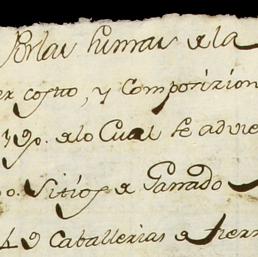 Por las sumas de la
er costo, y Composizion
dho. de lo Cual se advie
o. Sitios de Ganado
4 9 Caballerias de tierr